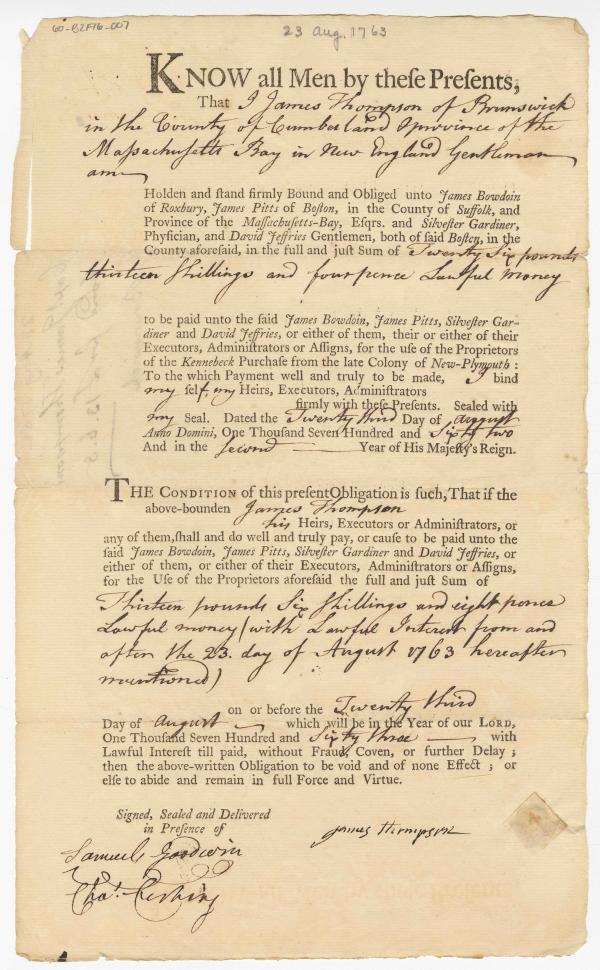 60-B2F16-007
23 Aug. 1763
KNOW all Men by theſe Preſents,
That I James Thompson of Brunswick
in the County of Cumberland & province of the
Maſsachuſetts Bay in New England Gentleman
am
Holden and ſtand firmly Bound and Obliged unto James Bowdoin
of Roxbury, James Pitts of Boſton, in the County of Suffolk, and
Province of the Maſſachuſetts-Bay, Eſqrs. and Silveſter Gardiner,
Phyſician, and David Jeffries Gentlemen, both of ſaid Boſton, in the
County aforeſaid, in the full and juſt Sum of Twenty Six pounds
thirteen ſhillings and four pence Lawful money
to be paid unto the ſaid James Bowdoin, James Pitts, Silveſter Gar-
diner and David Jeffries, or either of them, their or either of their
Executors, Adminiſtrators or Aſſigns, for the uſe of the Proprietors
of the Kennebeck Purchaſe from the late Colony of New-Plymouth:
To the which Payment well and truly to be made, I bind
my ſelf, my Heirs, Executors, Adminiſtrators
firmly with theſe Preſents. Sealed with
my Seal. Dated the Twenty third Day of August
Anno Domini, One Thouſand Seven Hundred and Sixty two
And in the Second Year of His Majeſty's Reign.
THE CONDITION of this preſent Obligation is ſuch, That if the
above-bounden James Thompson
his Heirs, Executors or Adminiſtrators, or
any of them, ſhall and do well and truly pay, or cauſe to be paid unto the
ſaid James Bowdoin, James Pitts, Silveſter Gardiner and David Jeffries, or
either of them, or either of their Executors, Adminiſtrators or Aſſigns,
for the Uſe of the Proprietors aforeſaid the full and juſt Sum of
Thirteen pounds Six ſhillings and eight pence
Lawful money (with Lawful Interest from and
after the 23. day of August 1763 hereafter
mentioned)
on or before the Twenty third
Day of August which will be in the Year of our LORD,
One Thouſand Seven Hundred and Sixty three with
Lawful Intereſt till paid, without Fraud, Coven, or further Delay;
then the above-written Obligation to be void and of none Effect; or
elſe to abide and remain in full Force and Virtue.
Signed, Sealed and Delivered
in Preſence of
James Thompson
Samuel Goodwin